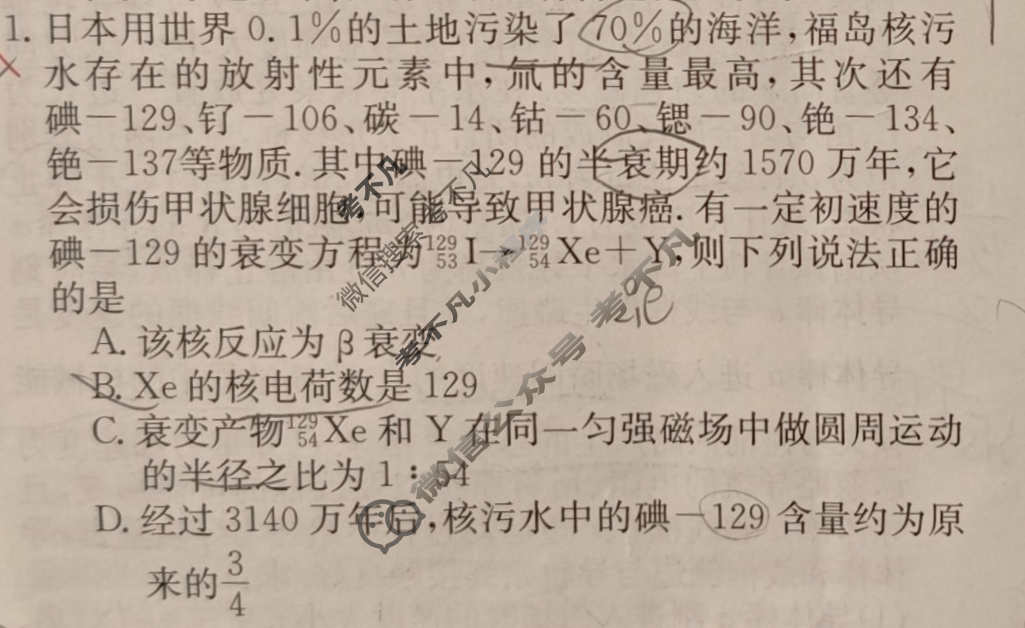 1. 日本用世界 0.1%的土地污染了 70%的海洋,福岛核污
水存在的放射性元素中,氚的含量最高,其次还有
碘-129、钌-106、碳-14、钴-60、锶-90、铯-134、
铯-137等物质.其中碘-129 的半衰期约 1570 万年,它
会损伤甲状腺细胞,可能导致甲状腺癌.有一定初速度的
碘-129 的衰变方程为 ¹²⁹₅₃I→¹²⁹₅₄Xe+Y,则下列说法正确
的是
A. 该核反应为 β 衰变
B. Xe 的核电荷数是 129
C. 衰变产物 ¹²⁹₅₄Xe 和 Y 在同一匀强磁场中做圆周运动
的半径之比为 1∶54
D. 经过 3140 万年后,核污水中的碘-129 含量约为原
来的 3/4
微信搜索 考不凡
考不凡小程序
微信公众号 考不凡